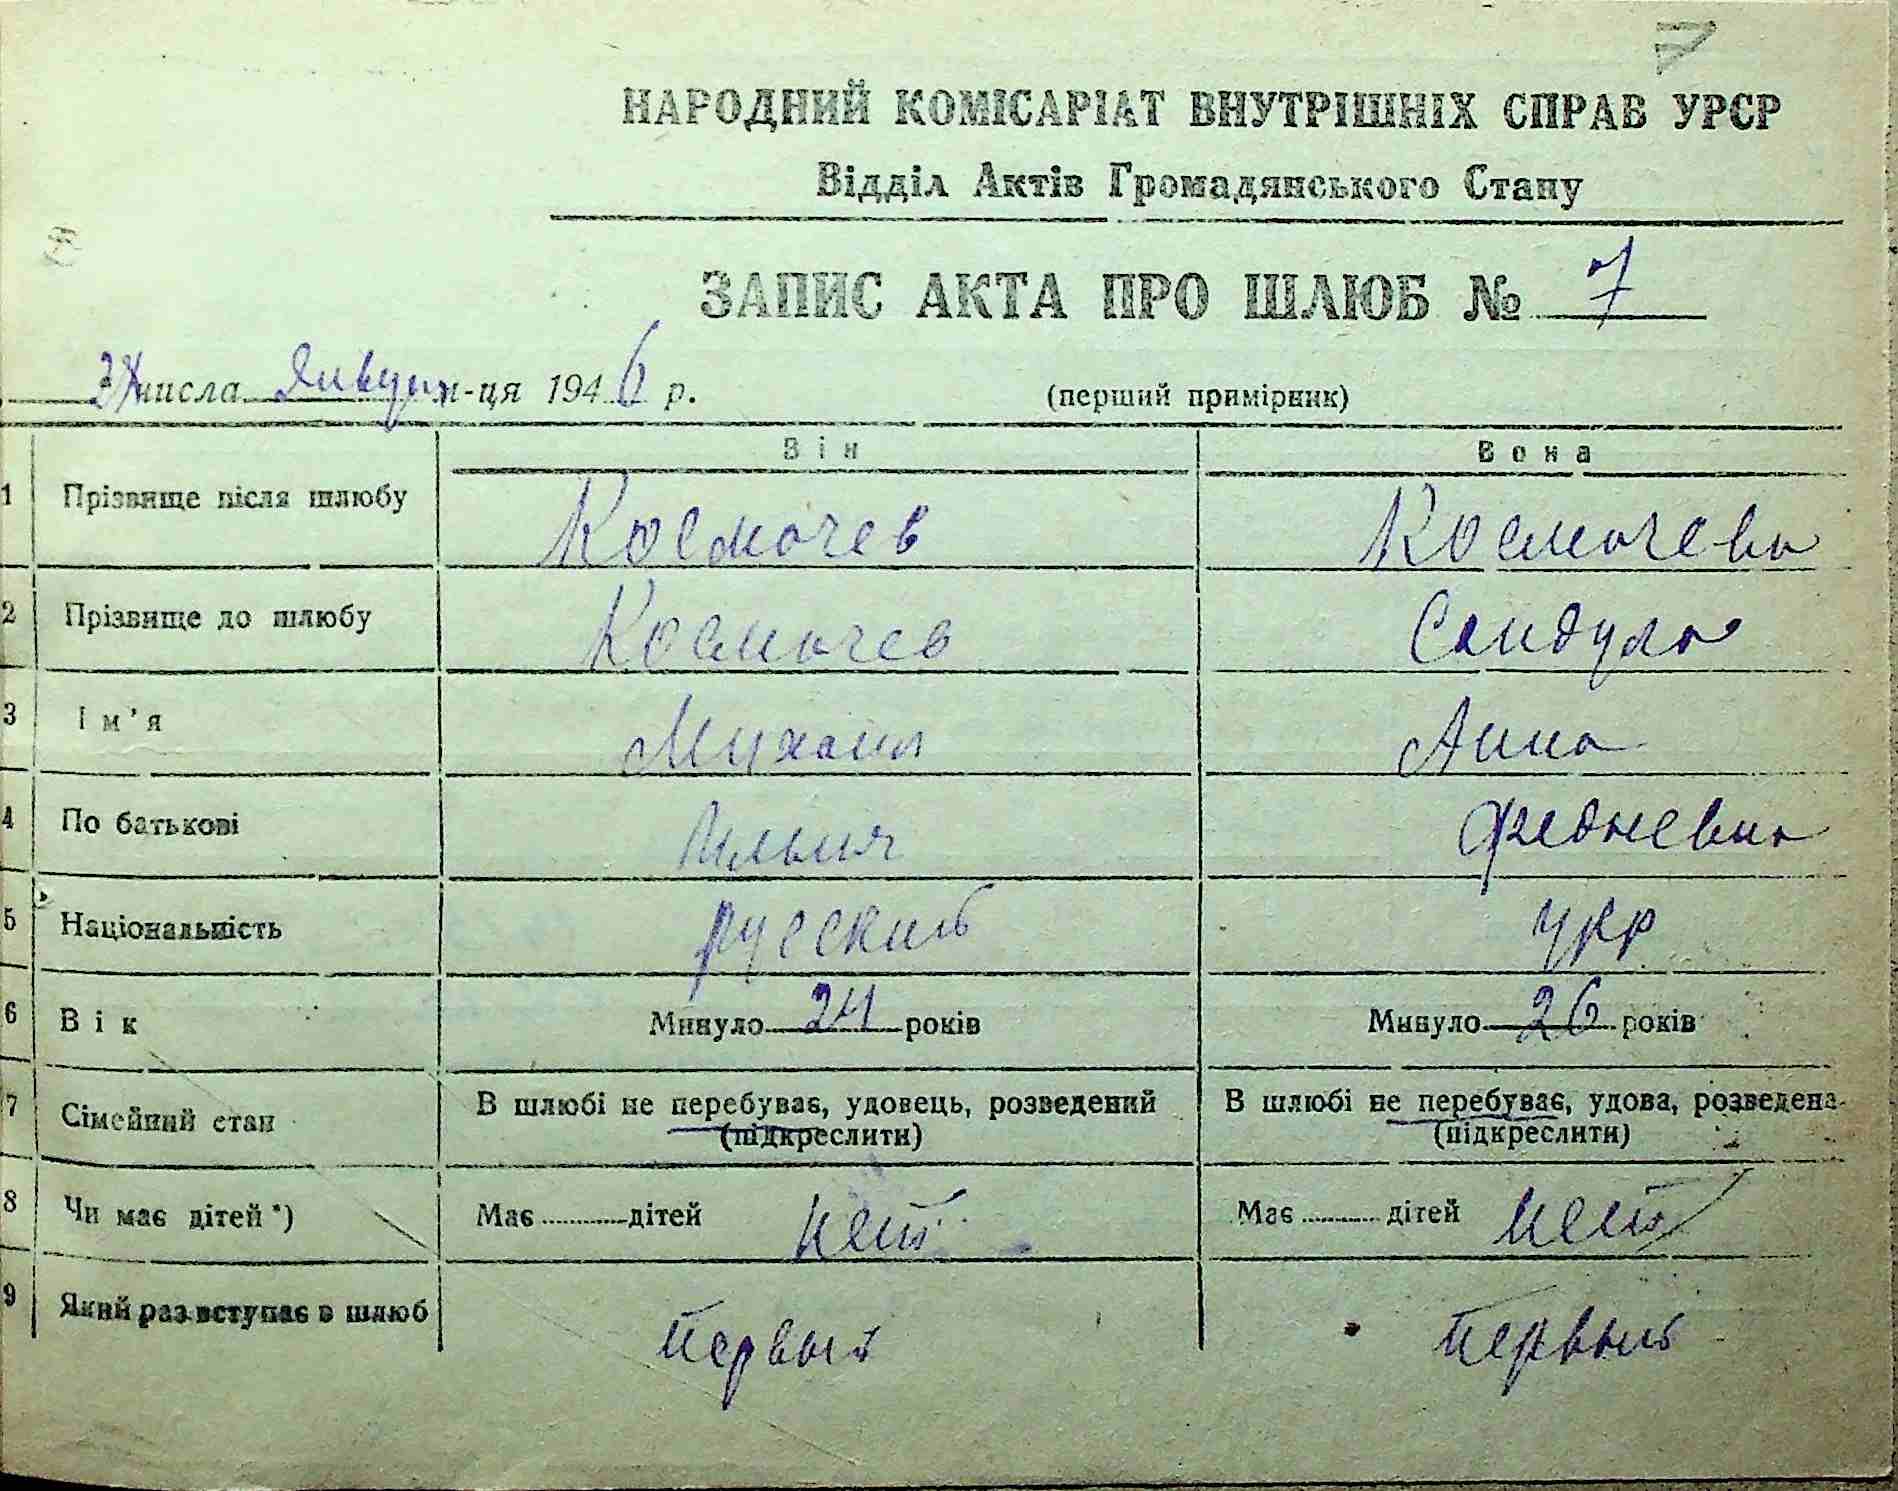 НАРОДНИЙ КОМІСАРІАТ ВНУТРІШНІХ СПРАВ УРСР
Відділ Актів Громадянського Стану
ЗАПИС АКТА ПРО ШЛЮБ № 7
числа Января м-ця 1946 р. (перший примірник)
Він Вона
1 Прізвище після шлюбу Космачев Космачева
2 Прізвище до шлюбу Космачев Сандула
3 Ім'я Михаил Анна
4 По батькові Ильич
5 Національність русский укр
6 Вік Минуло 24 років Минуло 26 років
7 Сімейний стан В шлюбі не перебуває, удовець, розведений В шлюбі не перебуває, удова, розведена
(підкреслити) (підкреслити)
8 Чи має дітей *) Має дітей нет Має дітей нет
9 Який раз вступає в шлюб Первый Первый